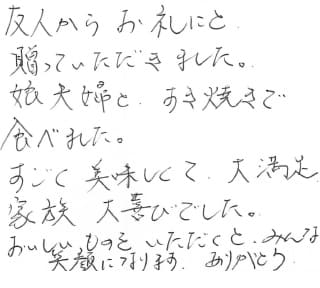 友人から お礼にと
贈っていただきました。
娘夫婦と、すき焼きで
食べました。
すごく 美味しくて、大満足
家族 大喜びでした。
おいしいものを いただくと、みんな
笑顔になります。ありがとう